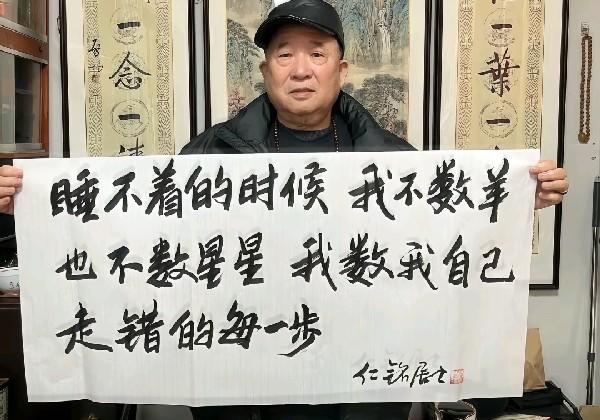 睡不着的时候 我不数羊
也不数星星 我数我自己
走错的每一步
仁铭居士
一念一清
一叶一